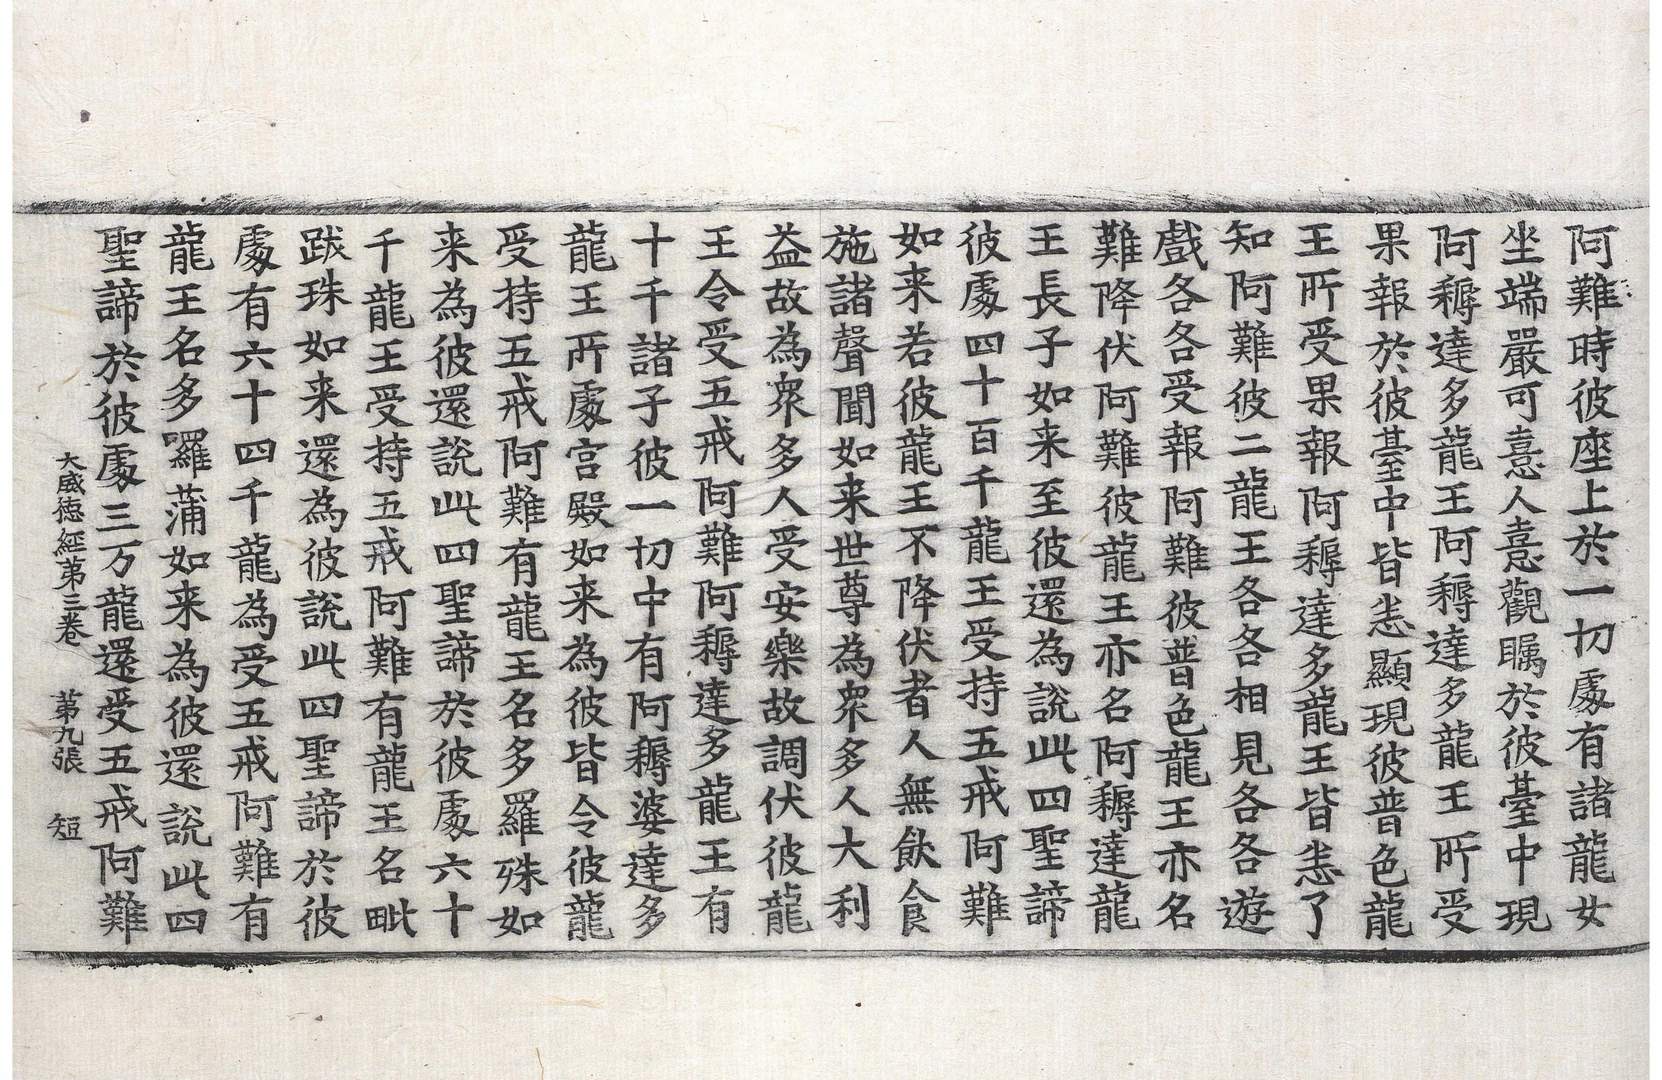 阿難時彼座上於一切處有諸龍女
坐端嚴可憙人憙觀矚於彼臺中現
阿耨達多龍王阿耨達多龍王所受
果報於彼臺中皆悉顯現彼普色龍
王所受果報阿耨達多龍王皆悉了
知阿難彼二龍王各各相見各各遊
戲各各受報阿難彼普色龍王亦名
難降伏阿難彼龍王亦名阿耨達龍
王長子如来至彼還為說此四聖諦
彼處四十百千龍王受持五戒阿難
如来若彼龍王不降伏者人無飲食
施諸聲聞如来世尊為衆多人大利
益故為衆多人受安樂故調伏彼龍
王令受五戒阿難阿耨達多龍王有
十千諸子彼一切中有阿耨婆達多
龍王所處宮殿如来為彼皆令彼龍
受持五戒阿難有龍王名多羅殊如
来為彼還說此四聖諦於彼處六十
千龍王受持五戒阿難有龍王名毗
跋珠如来還為彼說此四聖諦於彼
處有六十四千龍為受五戒阿難有
龍王名多囉蒲如来為彼還說此四
聖諦於彼處三万龍還受五戒阿難
大威德經第三卷 第九張 短